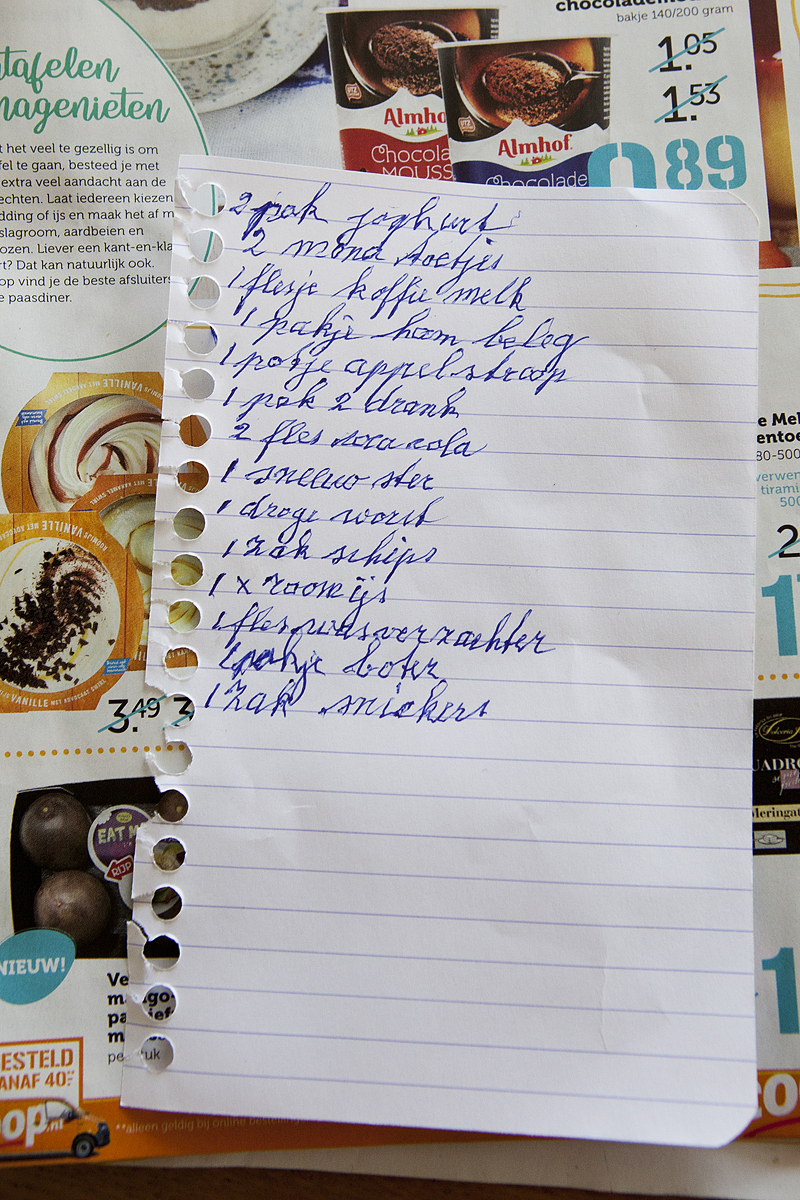 tafelen
nagenieten
t het veel te gezellig is om
fel te gaan, besteed je met
extra veel aandacht aan de
echten. Laat iedereen kiezen
dding of ijs en maak het af m
slagroom, aardbeien en
ozen. Liever een kant-en-kla
rt? Dat kan natuurlijk ook.
op vind je de beste afsluiters
e paasdiner.
bakje 140/200 gram
1.05
1.53
0.89
Almho
Chocola
MOUSS
Almhof
Chocolade
2 pak joghurt
2 mona toetjes
1 flesje koffie melk
1 pakje ham beleg
1 potje appelstroop
1 pak 2 drank
2 fles coca cola
1 sneeuw ster
1 droge worst
1 zak schips
1 x roomijs
1 fles wasverzachter
1 pakje boter
1 zak snickers
VANILLE
VANILLE MET ADVOCAAT
3.49 3.
EAT M
RIJP
NIEUW!
Ve
pe uk
ESTELD
ANAF 40
op.nl
**alleen geldig bij online
e Mel
entoe
80-500
verwen
tirami
500
2
1
UADRO
Meringat
1